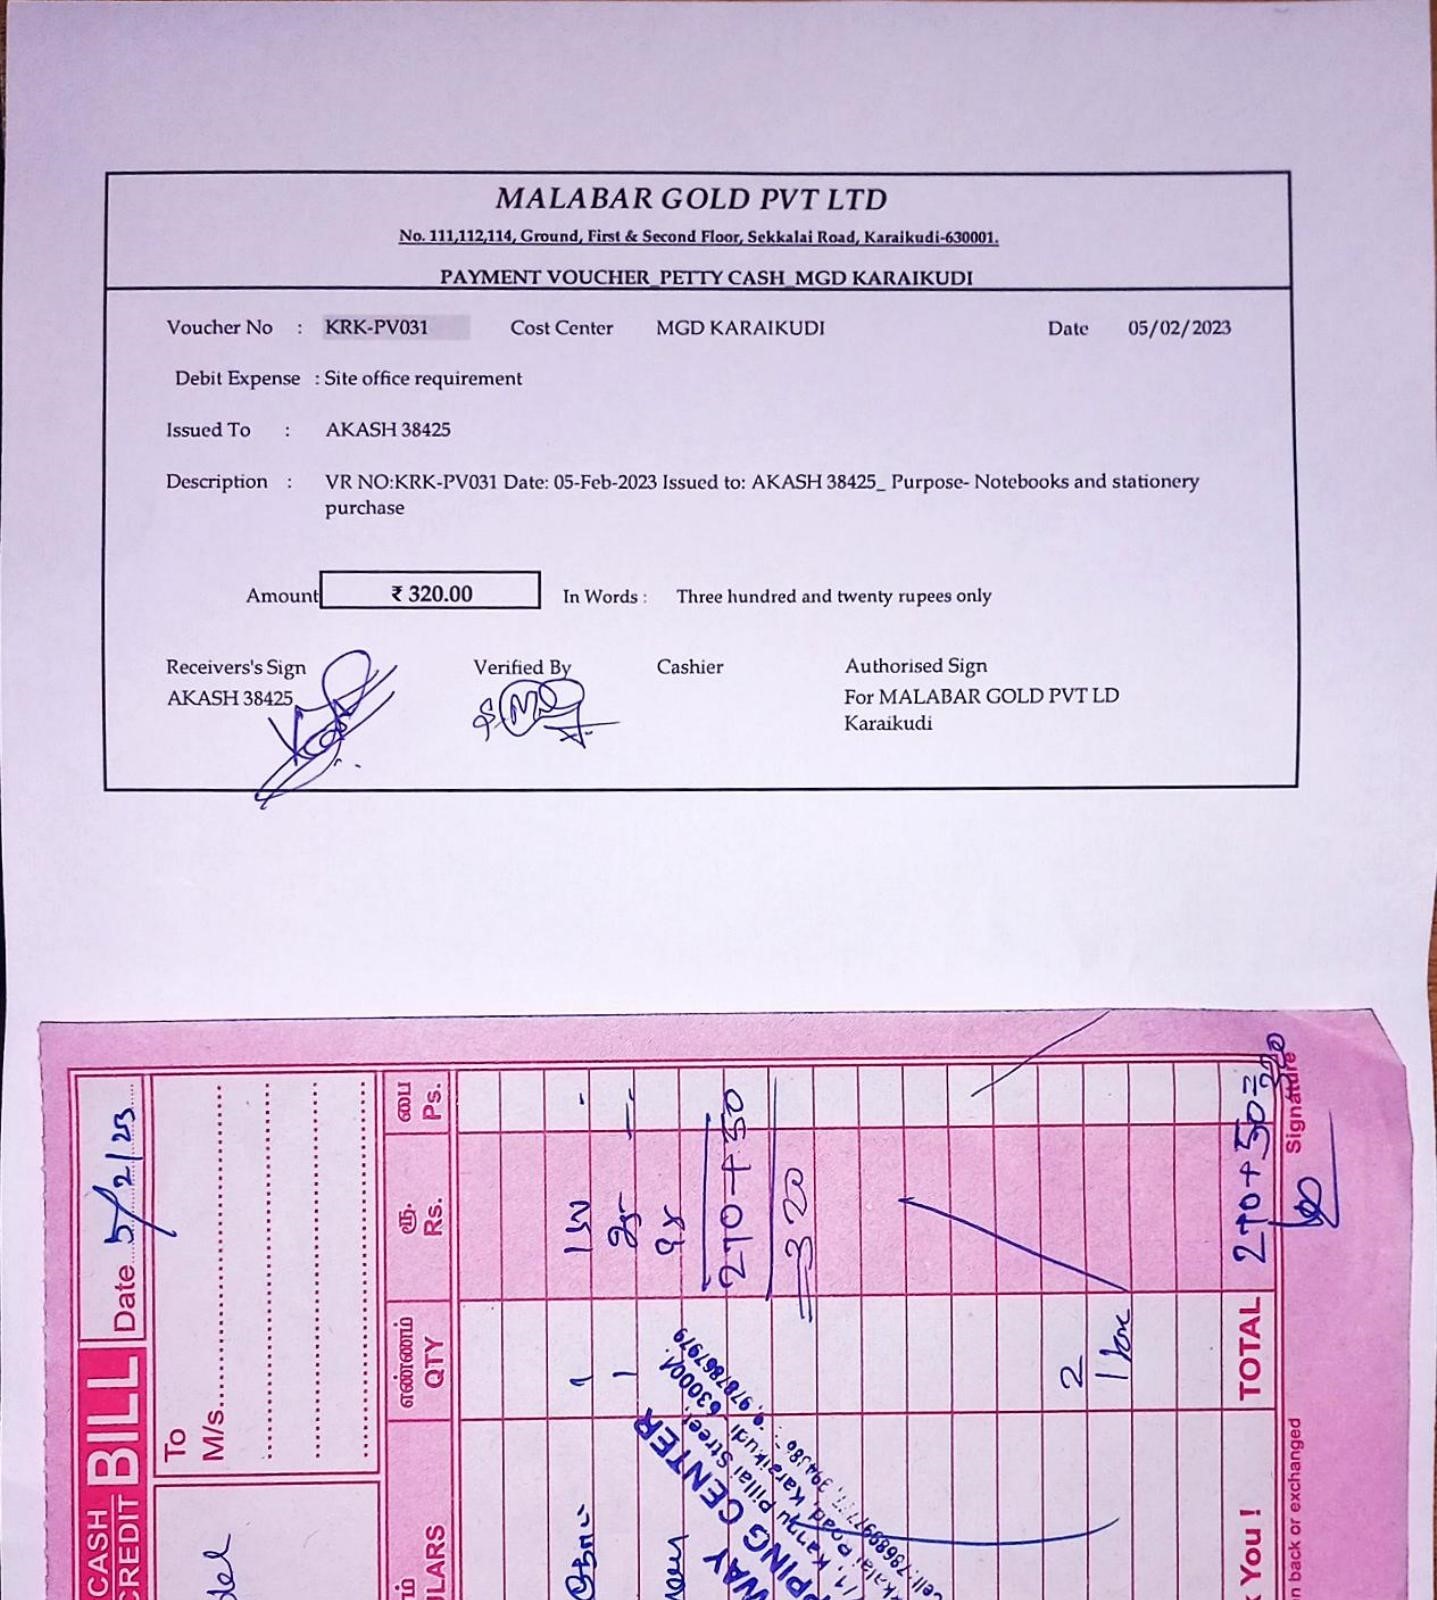 MALABAR GOLD PVT LTD
No. 111,112,114, Ground, First & Second Floor, Sekkalai Road, Karaikudi-630001.
PAYMENT VOUCHER_PETTY CASH_MGD KARAIKUDI
Voucher No : KRK-PV031 Cost Center MGD KARAIKUDI Date 05/02/2023
Debit Expense : Site office requirement
Issued To : AKASH 38425
Description : VR NO:KRK-PV031 Date: 05-Feb-2023 Issued to: AKASH 38425_ Purpose- Notebooks and stationery
purchase
Amount ₹ 320.00 In Words : Three hundred and twenty rupees only
Receivers's Sign Verified By Cashier Authorised Sign
AKASH 38425 For MALABAR GOLD PVT LD
Karaikudi
CASH
CREDIT BILL Date 5/2/23
To
M/s.
எண்ணம் ரூ. பை
LARS QTY Rs. Ps.
1
1
270+50
320
CENTER
PPING
Pillai Street
Karaikudi 630001.
2
1
You ! TOTAL 270+50=320
n back or exchanged Signature